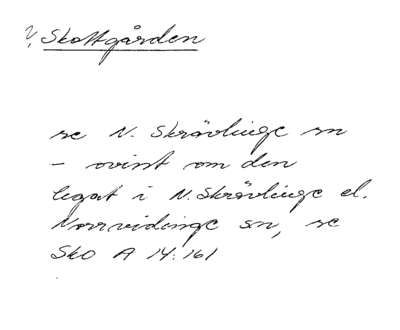 ?, Skottgården
se N. Skrävlinge sn
- ovisst om den
legat i N. Skrävlinge el.
Norrvidinge sn, se
SkO A 14:161